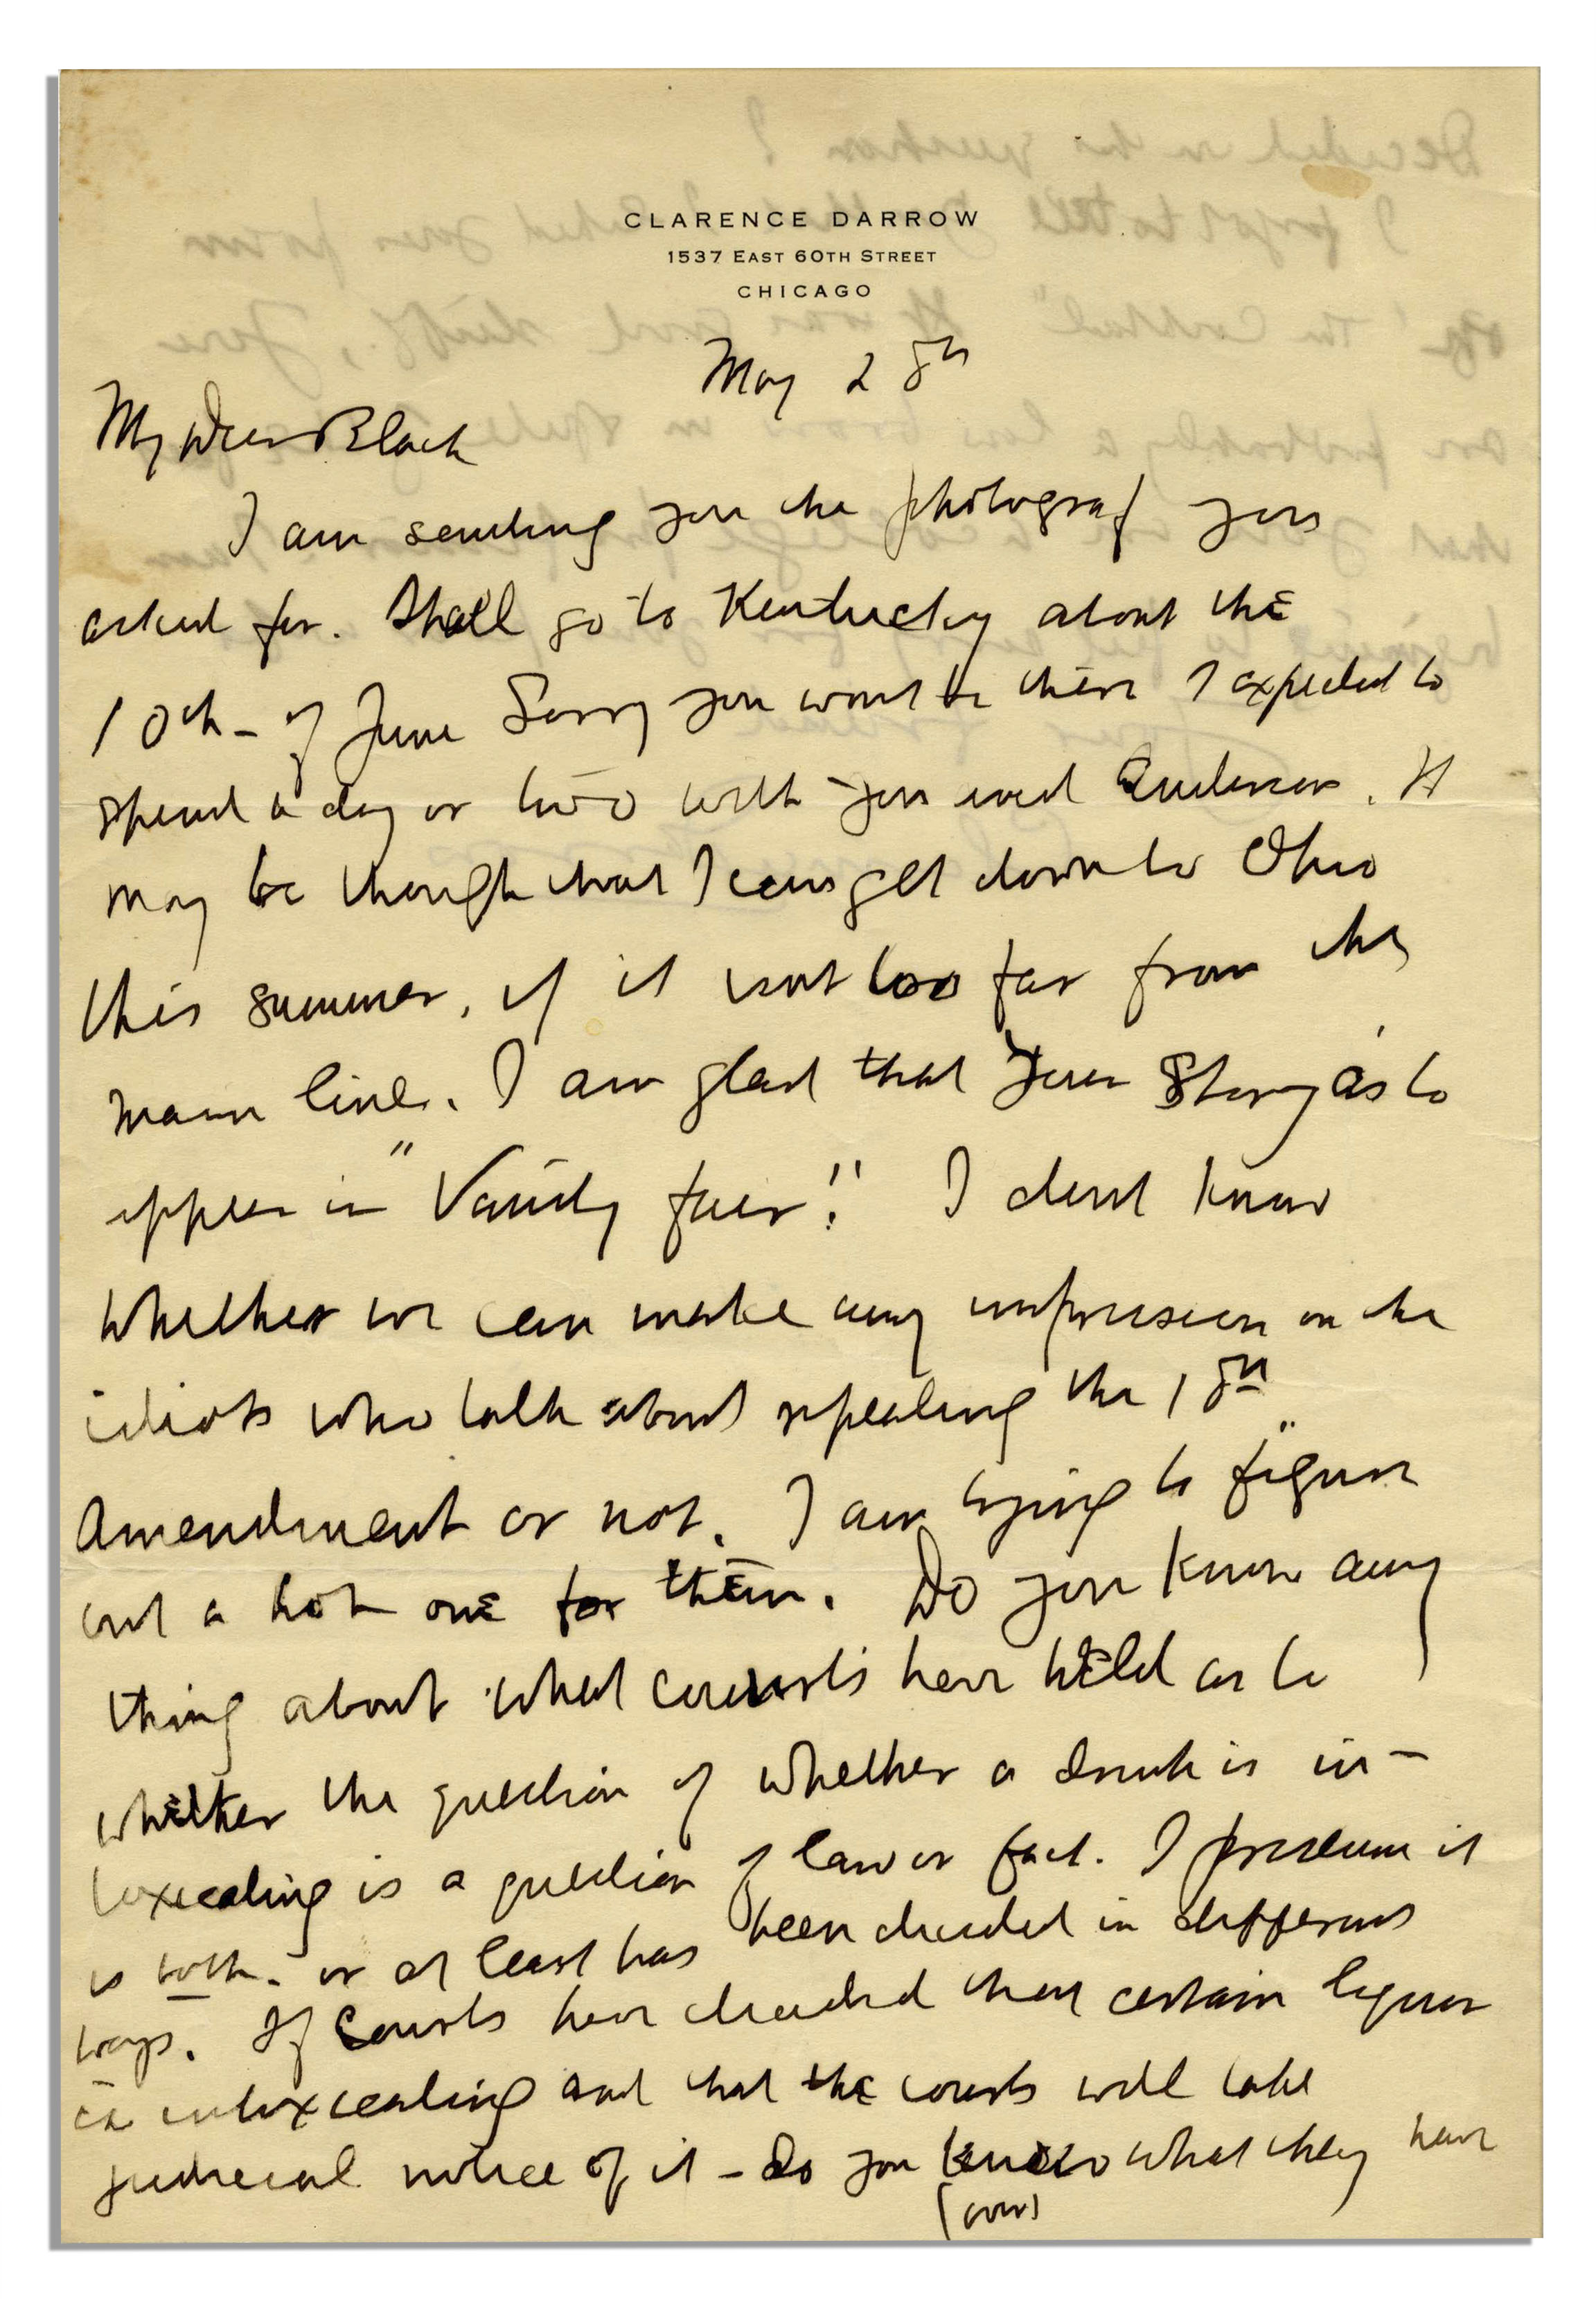 CLARENCE DARROW
1537 EAST 60TH STREET
CHICAGO
May 28th
My Dear Black
I am sending you the photograf you
asked for. Shall go to Kentucky about the
10th - of June Sorry you wont be there I expected to
spend a day or two with you and Anderson. It
may be though that I can get down to Ohio
this summer, if it isnt too far from the
main line. I am glad that your story is to
appear in "Vanity fair". I dont know
whether we can make any impression on the
idiots who talk about repealing the 18th
Amendment or not. I am trying to figure
out a hot one for them. Do you know any
thing about what courts have held as to
whether the question of whether a drink is in-
toxicating is a question of law or fact. I presume it
is both. or at least has been decided in different
ways. If Courts have decided that certain liquor
is intoxicating and that the courts will take
judicial notice of it - do you know what they have
(over)